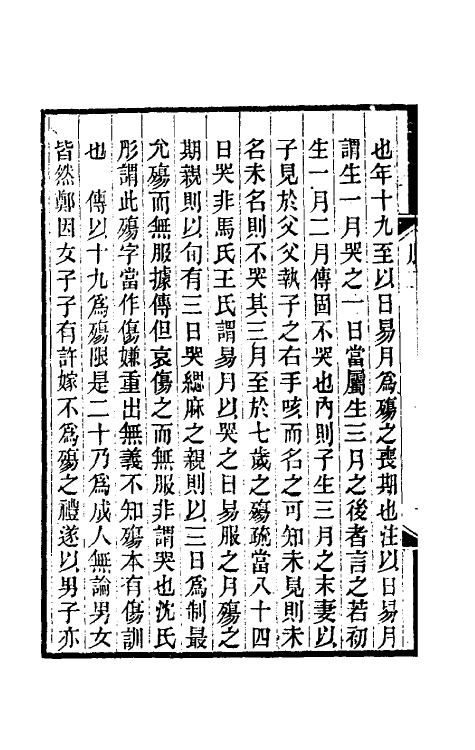 也年十九至以日易月爲殤之喪期也注以日易月
謂生一月哭之一日當屬生三月之後者言之若初
生一月二月傳固不哭也內則子生三月之末妻以
子見於父父執子之右手咳而名之可知未見則未
名未名則不哭其三月至於七歲之殤疏當八十四
日哭非馬氏王氏謂易月以哭之日易服之月殤之
期親則以旬有三日哭緦麻之親則以三日爲制最
允殤而無服據傳但哀傷之而無服非謂哭也沈氏
彤謂此殤字當作傷嫌重出無義不知殤本有傷訓
也　傳以十九爲殤限是二十乃爲成人無論男女
皆然鄭因女子子有許嫁不爲殤之禮遂以男子亦